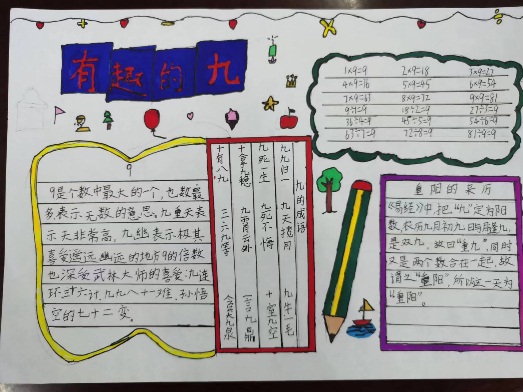 有趣的九
1×9=9 2×9=18 3×9=27
4×9=36 5×9=45 6×9=54
7×9=63 8×9=72 9×9=81
9÷1=9 18÷2=9 27÷3=9
36÷4=9 45÷5=9 54÷6=9
63÷7=9 72÷8=9 81÷9=9
9
9是个数中最大的一个,也数最
多表示无数的意思,九重天表
示天非常高,九
喜爱 远的地形9的倍数
也深受武林大师的喜爱,九连
环,三十六计,九九八十一难,孙悟
空的七十二变。
九的成语
九九归一 九天揽月 九牛一毛
九死一生 九死不悔 十室九空
十拿九稳 九霄云外 一言九鼎
十有八九 三六九等 含笑九泉
重阳的来历
《易经》中把"九"定为阳
数,农历九月初九日月皆九,
是双九,故曰"重九",同时
又是两个数合在一起,故
谓之"重阳",所以这一天为
"重阳"。